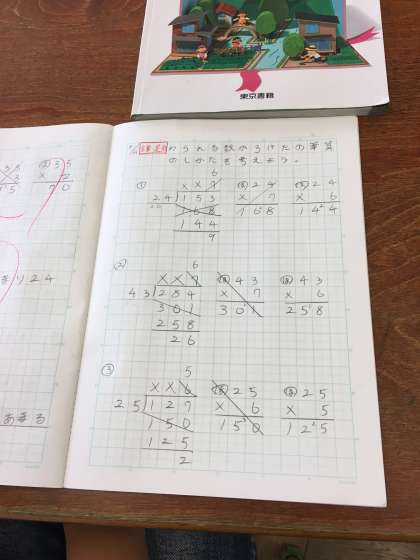 東京書籍
わられる数が3けたの筆算
のしかたを考えよう。
①
6
××7
24)153
168
144
9
24
× 7
168
24
× 6
144
②
6
××7
43)284
301
258
26
43
× 7
301
43
× 6
258
③
5
××6
25)127
150
125
2
25
× 6
150
25
× 5
125
35
× 2
70
24
ある